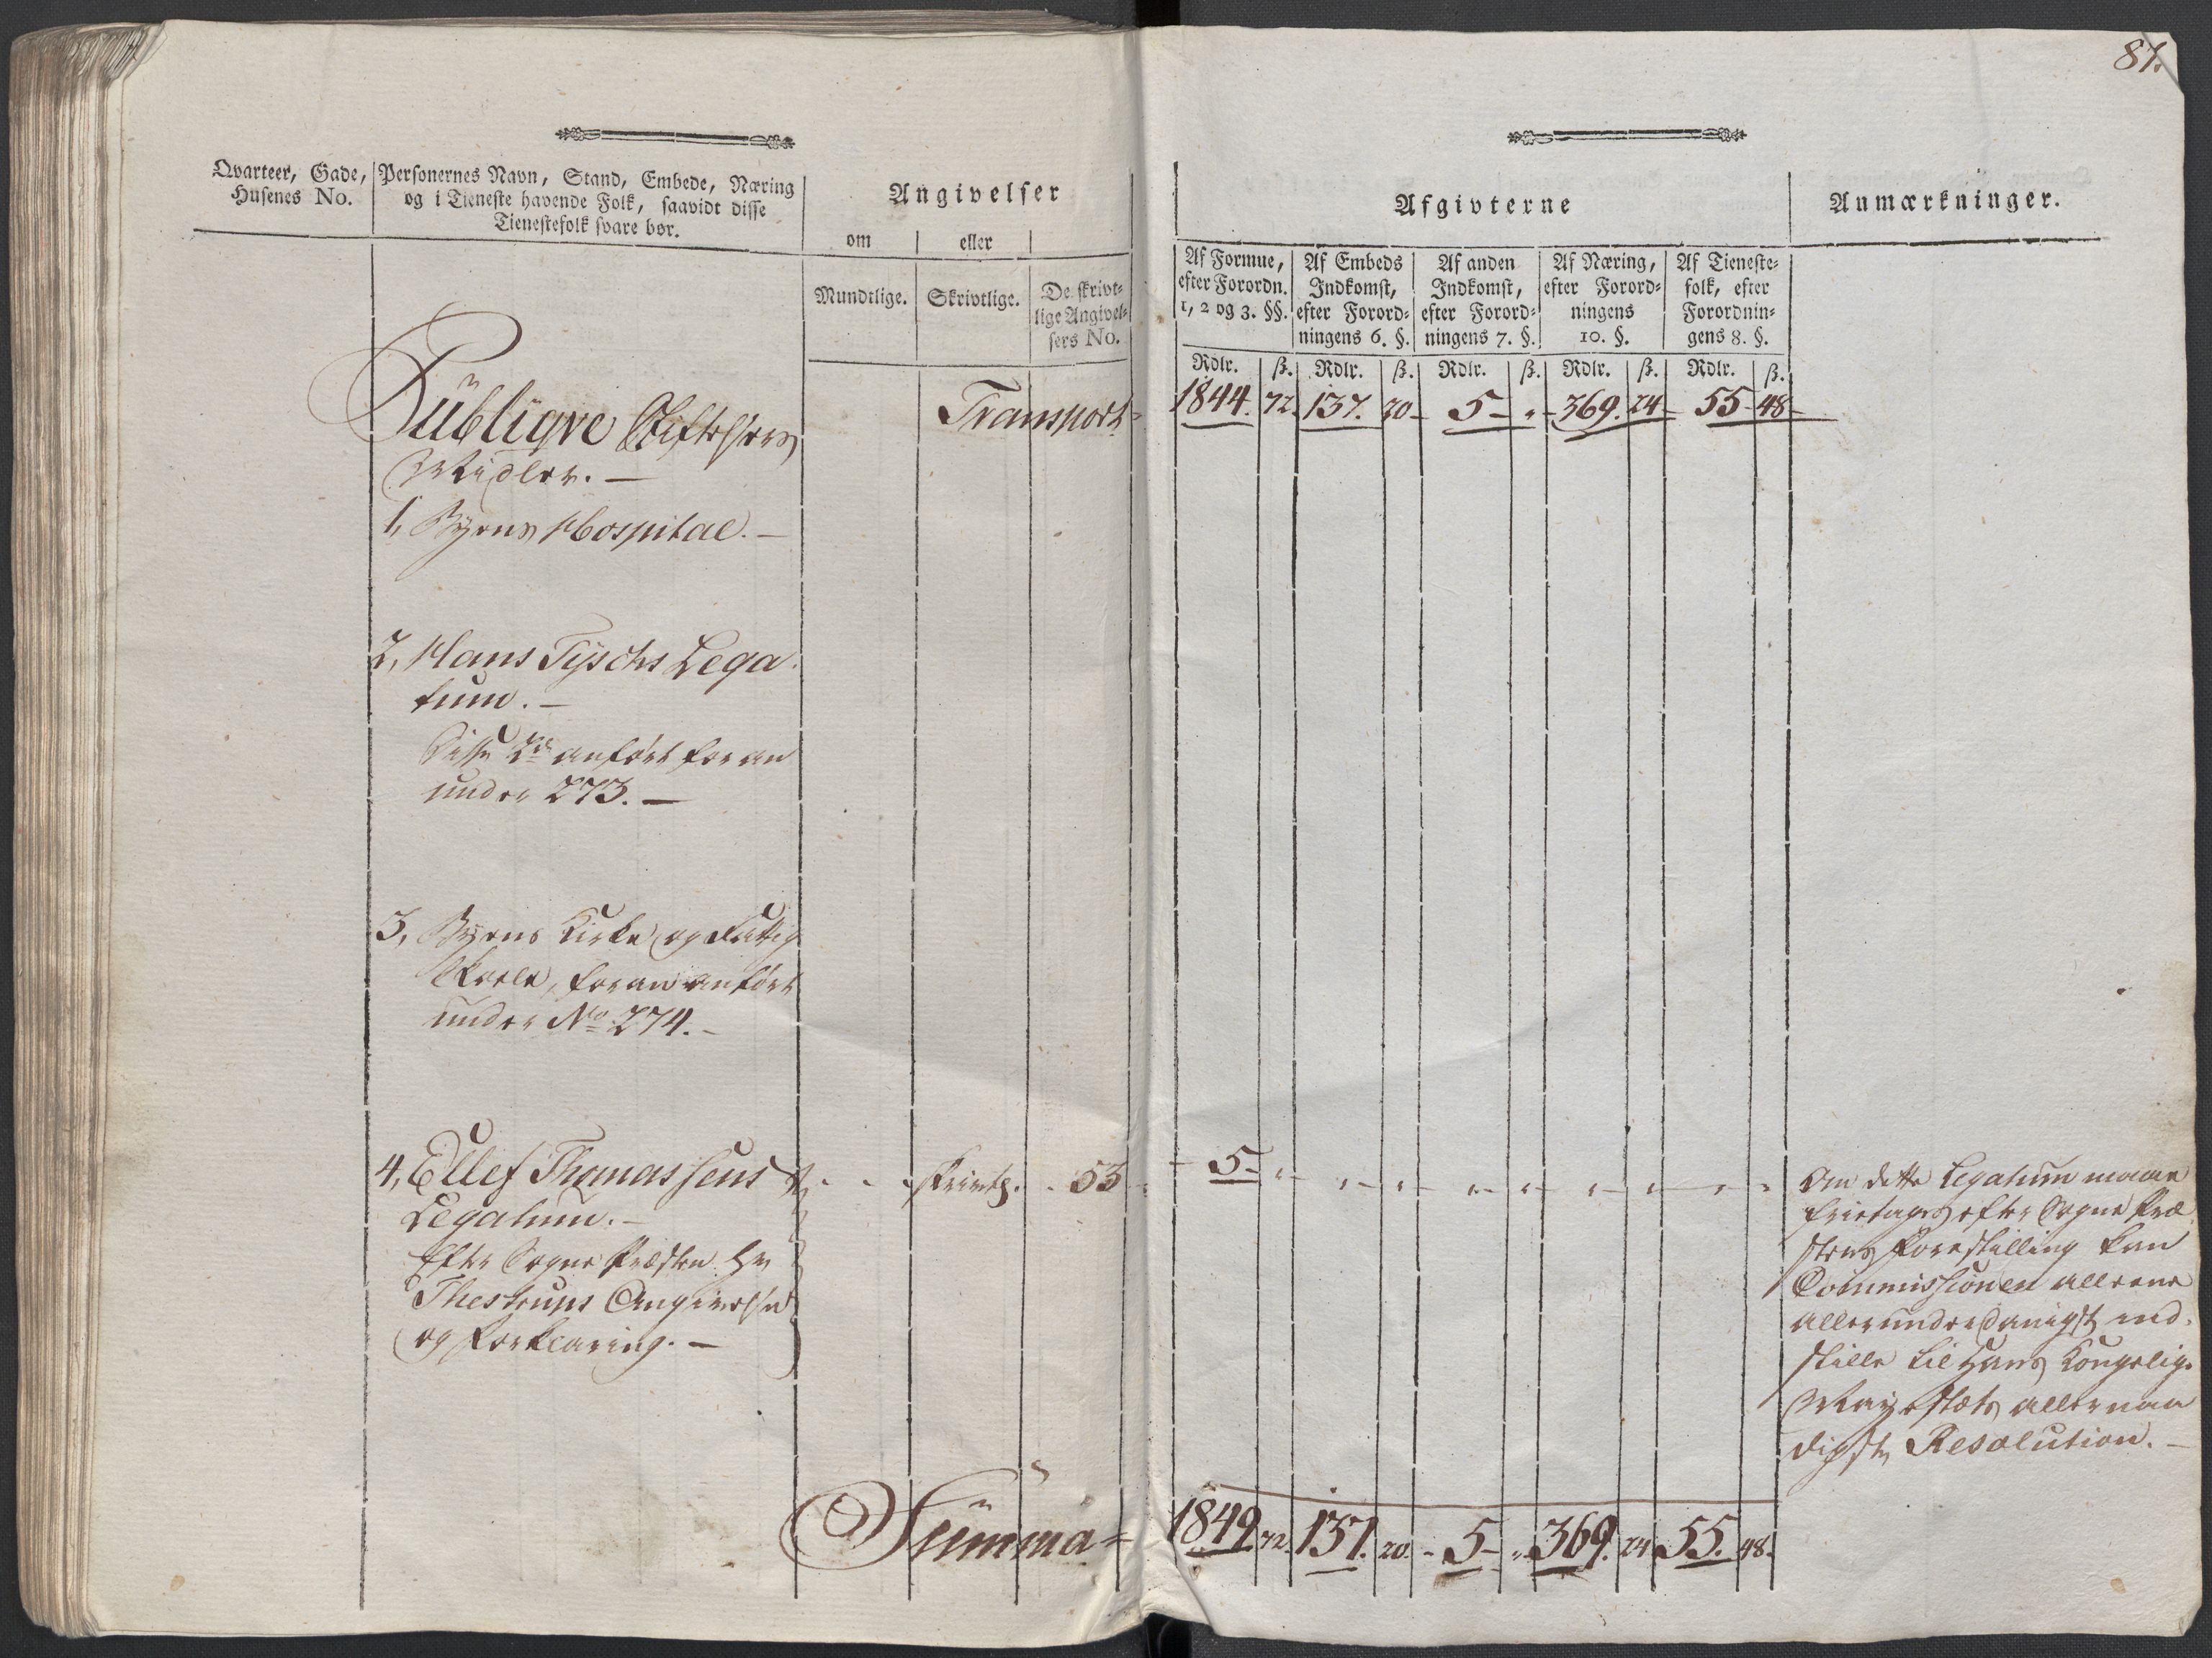 87.
Qvarteer, Gade,
Husenes No.
Personernes Navn, Stand, Embede, Næring
og i Tieneste havende Folk, saavidt disse
Tienestefolk svare bør.
Angivelser
om eller
Mundtlige. Skrivtlige. De skrivt-
lige Angivel-
sers No.
Afgivterne
Anmærkninger.
Af Formue,
efter Forordn.
1, 2 og 3. §§.
Af Embeds
Indkomst,
efter Forord-
ningens 6. §.
Af anden
Indkomst,
efter Forord-
ningens 7. §.
Af Næring,
efter Forord-
ningens
10. §.
Af Tieneste-
folk, efter
Forordnin-
gens 8. §.
Rdlr. ß. Rdlr. ß. Rdlr. ß. Rdlr. ß. Rdlr. ß.
Transport 1844. 72. 137. 20 5 " 369. 24 55 48
Püblique Stiftelsers
Midler. —
1, Byens Hospital. —
2, Hans Tÿschs Lega
tum. —
Disse 2de anført foran
under 273. —
3, Byens Kirke og Fattig
Skole, foran anført
under No 274. —
4, Ellef Thomassens
Legatum. —
Efter Sogne Præsten Hr
Thestrups Angivelse
og Forklaring. —
skrivtl. 53 5 " " " " " " " " "
Om dette Legatum maae
fritages efter Sogne Præ
stens Forestilling kan
Commissionen alleene
allerunderdanigst ind-
stille til Hans Kongelig.
Majestæts allernaa
digste Resolution. —
Summa 1849. 72. 137. 20. 5 " 369. 24 55. 48.